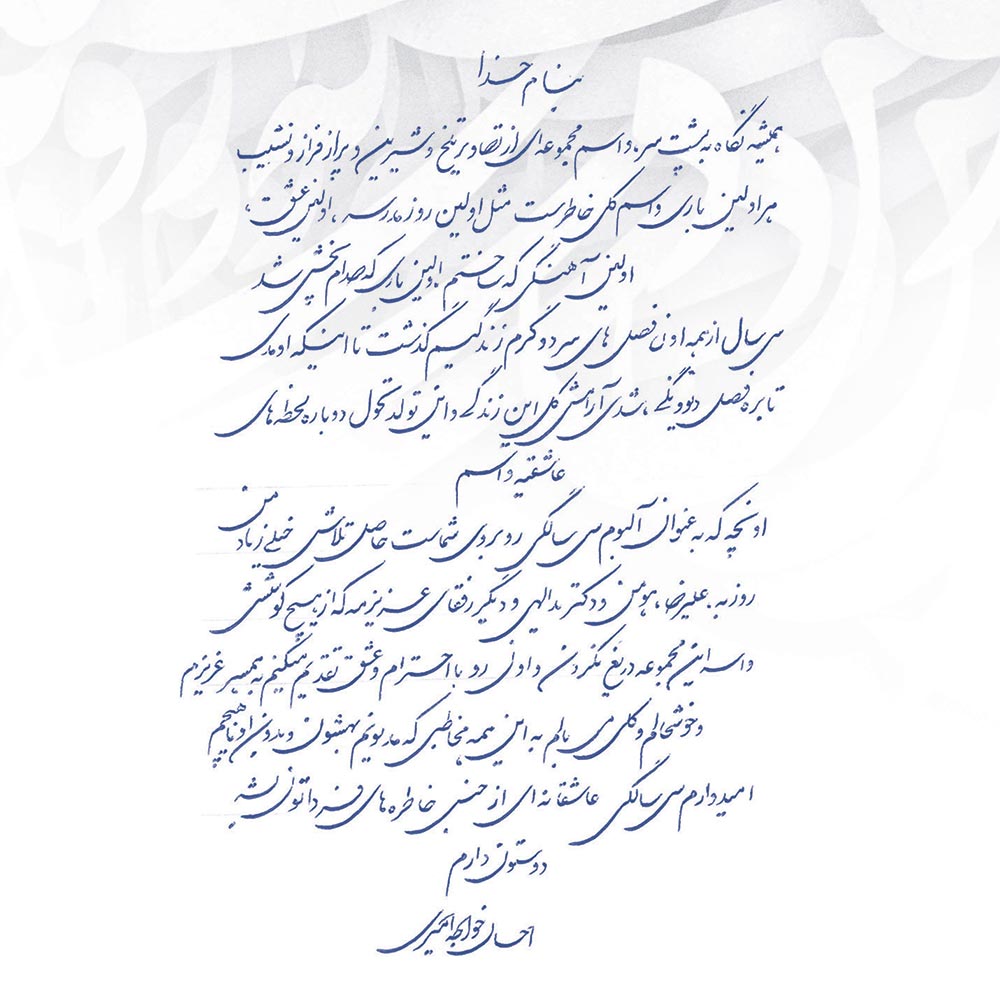 بنام خدا
همیشه نگاه به پشت سر، واسم مجموعه‌ای از تصاویر تلخ و شیرین و پر از فراز و نشیب
هر اولین باری واسم کلی خاطرست مثل اولین روز مدرسه، اولین عشق،
اولین آهنگی که ساختم، اولین باری که صدام پخش شد
سی سال از همه اون فصل های سرد و گرم زندگیم گذشت تا اینکه اومدی
تا بره فصل دیوونگی، شدی آرامش کل این زندگی و این تولد تحول دوباره لحظه های
عاشقیه واسم
اونچه که به عنوان آلبوم سی سالگی روبروی شماست حاصل تلاش خیلی زیاد من
روزبه، علیرضا، هومن و دکتر یدالهی و دیگر رفقای عزیزمه که از هیچ کوششی
واسه این مجموعه دریغ نکردن و اونی رو با احترام و عشق تقدیم میکنیم به همسر عزیزم
و خوشحالم و کلی می بالم به این همه مخاطبی که مدیونم بهشون و بدون اونا هیچم
امیدوارم سی سالگی عاشقانه ای از جنس خاطره های فرداتون بشه
دوستون دارم
احسان خواجه امیری